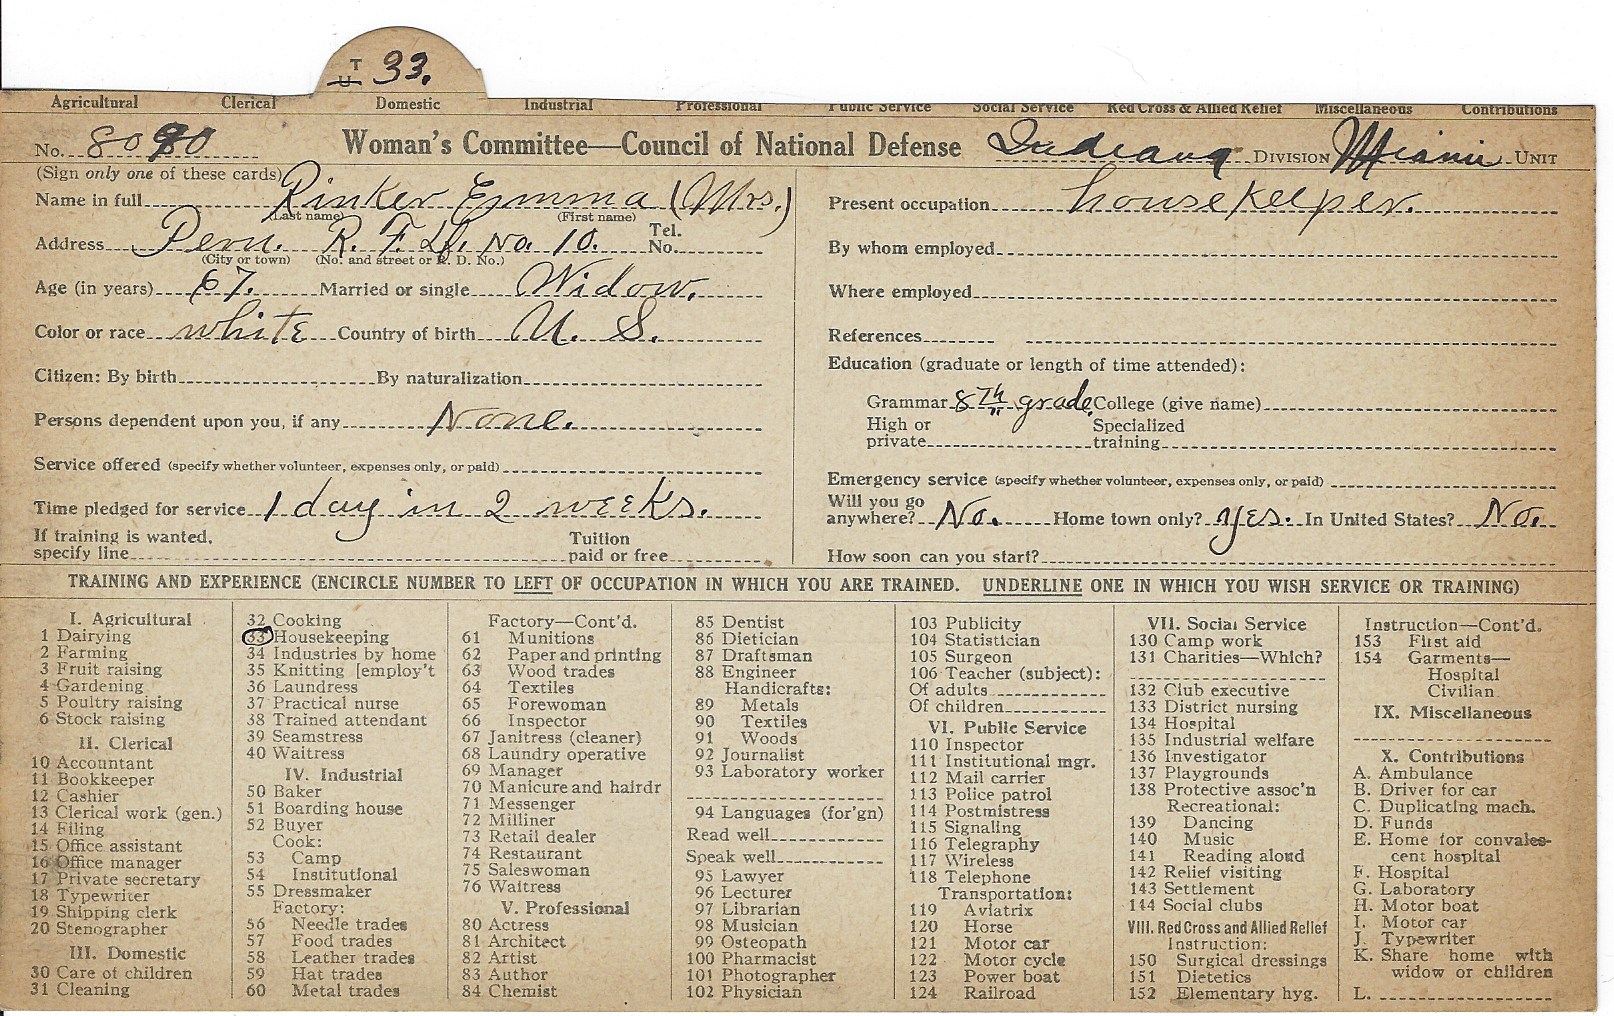 T
U 33.
Agricultural Clerical Domestic Industrial Professional Public Service Social Service Red Cross & Allied Relief Miscellaneous Contributions
No. 8080 Woman's Committee—Council of National Defense Indiana DIVISION Miami UNIT
(Sign only one of these cards)
Name in full Rinker Emma (Mrs.)
(Last name) (First name)
Address Peru. R. F. D. No. 10. Tel. No.
(City or town) (No. and street or R. D. No.)
Age (in years) 67. Married or single Widow.
Color or race white Country of birth U. S.
Citizen: By birth By naturalization
Persons dependent upon you, if any None.
Service offered (specify whether volunteer, expenses only, or paid)
Time pledged for service 1 day in 2 weeks.
If training is wanted, specify line Tuition paid or free
Present occupation housekeeper.
By whom employed
Where employed
References
Education (graduate or length of time attended):
Grammar 8th grade College (give name)
High or private Specialized training
Emergency service (specify whether volunteer, expenses only, or paid)
Will you go anywhere? No. Home town only? Yes. In United States? No.
How soon can you start?
TRAINING AND EXPERIENCE (ENCIRCLE NUMBER TO LEFT OF OCCUPATION IN WHICH YOU ARE TRAINED. UNDERLINE ONE IN WHICH YOU WISH SERVICE OR TRAINING)
I. Agricultural
1 Dairying
2 Farming
3 Fruit raising
4 Gardening
5 Poultry raising
6 Stock raising
II. Clerical
10 Accountant
11 Bookkeeper
12 Cashier
13 Clerical work (gen.)
14 Filing
15 Office assistant
16 Office manager
17 Private secretary
18 Typewriter
19 Shipping clerk
20 Stenographer
III. Domestic
30 Care of children
31 Cleaning
32 Cooking
33 Housekeeping
34 Industries by home
35 Knitting [employ't
36 Laundress
37 Practical nurse
38 Trained attendant
39 Seamstress
40 Waitress
IV. Industrial
50 Baker
51 Boarding house
52 Buyer
Cook:
53 Camp
54 Institutional
55 Dressmaker
Factory:
56 Needle trades
57 Food trades
58 Leather trades
59 Hat trades
60 Metal trades
Factory—Cont'd.
61 Munitions
62 Paper and printing
63 Wood trades
64 Textiles
65 Forewoman
66 Inspector
67 Janitress (cleaner)
68 Laundry operative
69 Manager
70 Manicure and hairdr
71 Messenger
72 Milliner
73 Retail dealer
74 Restaurant
75 Saleswoman
76 Waitress
V. Professional
80 Actress
81 Architect
82 Artist
83 Author
84 Chemist
85 Dentist
86 Dietician
87 Draftsman
88 Engineer
Handicrafts:
89 Metals
90 Textiles
91 Woods
92 Journalist
93 Laboratory worker
94 Languages (for'gn)
Read well
Speak well
95 Lawyer
96 Lecturer
97 Librarian
98 Musician
99 Osteopath
100 Pharmacist
101 Photographer
102 Physician
103 Publicity
104 Statistician
105 Surgeon
106 Teacher (subject):
Of adults
Of children
VI. Public Service
110 Inspector
111 Institutional mgr.
112 Mail carrier
113 Police patrol
114 Postmistress
115 Signaling
116 Telegraphy
117 Wireless
118 Telephone
Transportation:
119 Aviatrix
120 Horse
121 Motor car
122 Motor cycle
123 Power boat
124 Railroad
VII. Social Service
130 Camp work
131 Charities—Which?
132 Club executive
133 District nursing
134 Hospital
135 Industrial welfare
136 Investigator
137 Playgrounds
138 Protective assoc'n
Recreational:
139 Dancing
140 Music
141 Reading aloud
142 Relief visiting
143 Settlement
144 Social clubs
VIII. Red Cross and Allied Relief
Instruction:
150 Surgical dressings
151 Dietetics
152 Elementary hyg.
Instruction—Cont'd.
153 First aid
154 Garments—
Hospital
Civilian
IX. Miscellaneous
X. Contributions
A. Ambulance
B. Driver for car
C. Duplicating mach.
D. Funds
E. Home for convales-
cent hospital
F. Hospital
G. Laboratory
H. Motor boat
I. Motor car
J. Typewriter
K. Share home with
widow or children
L.